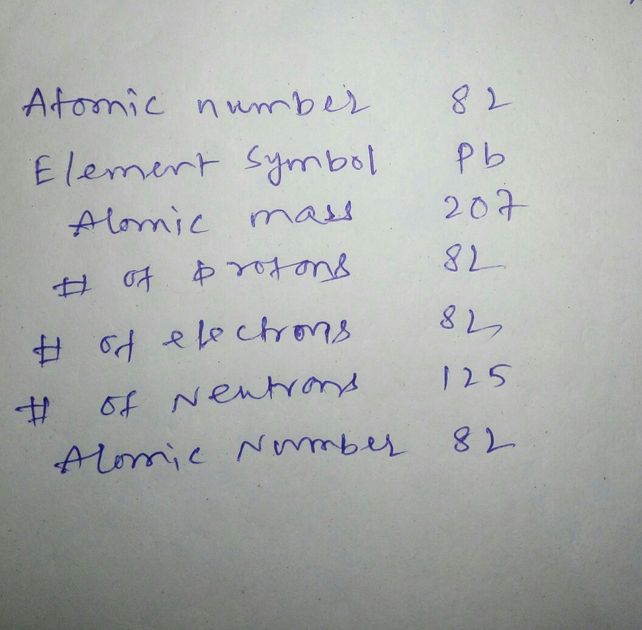 Atomic number 82
Element Symbol Pb
Atomic mass 207
# of protons 82
# of electrons 82
# of Neutrons 125
Atomic Number 82